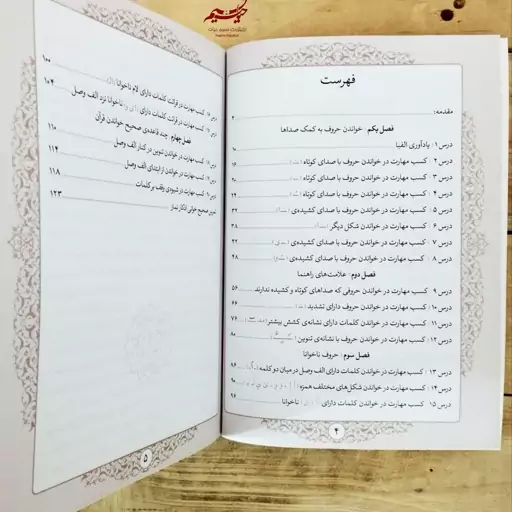 فهرست
مقدمه: ۷
فصل یکم خواندن حروف به کمک صداها
درس ۱ یادآوری الفبا ۱۰
درس ۲ کسب مهارت در خواندن حروف با صدای کوتاه ۱۶
درس ۳ کسب مهارت در خواندن حروف با صدای کوتاه ۲۰
درس ۴ کسب مهارت در خواندن حروف با صدای کوتاه ۲۴
درس ۵ کسب مهارت در خواندن حروف با صدای کشیده‌ی ۳۲
درس ۶ کسب مهارت در خواندن شکل دیگر ۳۸
درس ۷ کسب مهارت در خواندن حروف با صدای کشیده‌ی
درس ۸ کسب مهارت در خواندن حروف با صدای کشیده‌ی ۴۸
فصل دوم علامت‌های راهنما
درس ۹ کسب مهارت در خواندن حروفی که صداهای کوتاه و کشیده ندارند ۵۶
درس ۱۰ کسب مهارت در خواندن حروف دارای تشدید ۶۶
درس ۱۱ کسب مهارت در خواندن کلمات دارای نشانه‌ی کشش بیشتر ۷۴
درس ۱۲ کسب مهارت در خواندن حروف با نشانه‌ی تنوین ۸۰
فصل سوم حروف ناخوانا
درس ۱۳ کسب مهارت در خواندن کلمات دارای الف وصل در میان دو کلمه ۸۶
درس ۱۴ کسب مهارت در خواندن شکل‌های مختلف همزه ۹۰
درس ۱۵ کسب مهارت در خواندن کلمات دارای ناخوانا ۹۶
۴
کسب مهارت در قرائت کلمات دارای لام ناخوانا ۱۰۰
کسب مهارت در قرائت کلمات دارای ناخوانا نزد الف وصل ۱۰۴
فصل چهارم چند قاعده‌ی صحیح خواندن قرآن
کسب مهارت در خواندن تنوین در کنار الف وصل ۱۱۰
کسب مهارت در خواندن از ابتدای الف وصل ۱۱۴
کسب مهارت در شیوه‌ی وقف بر کلمات ۱۱۸
صحیح خوانی اذکار نماز ۱۲۳
۵